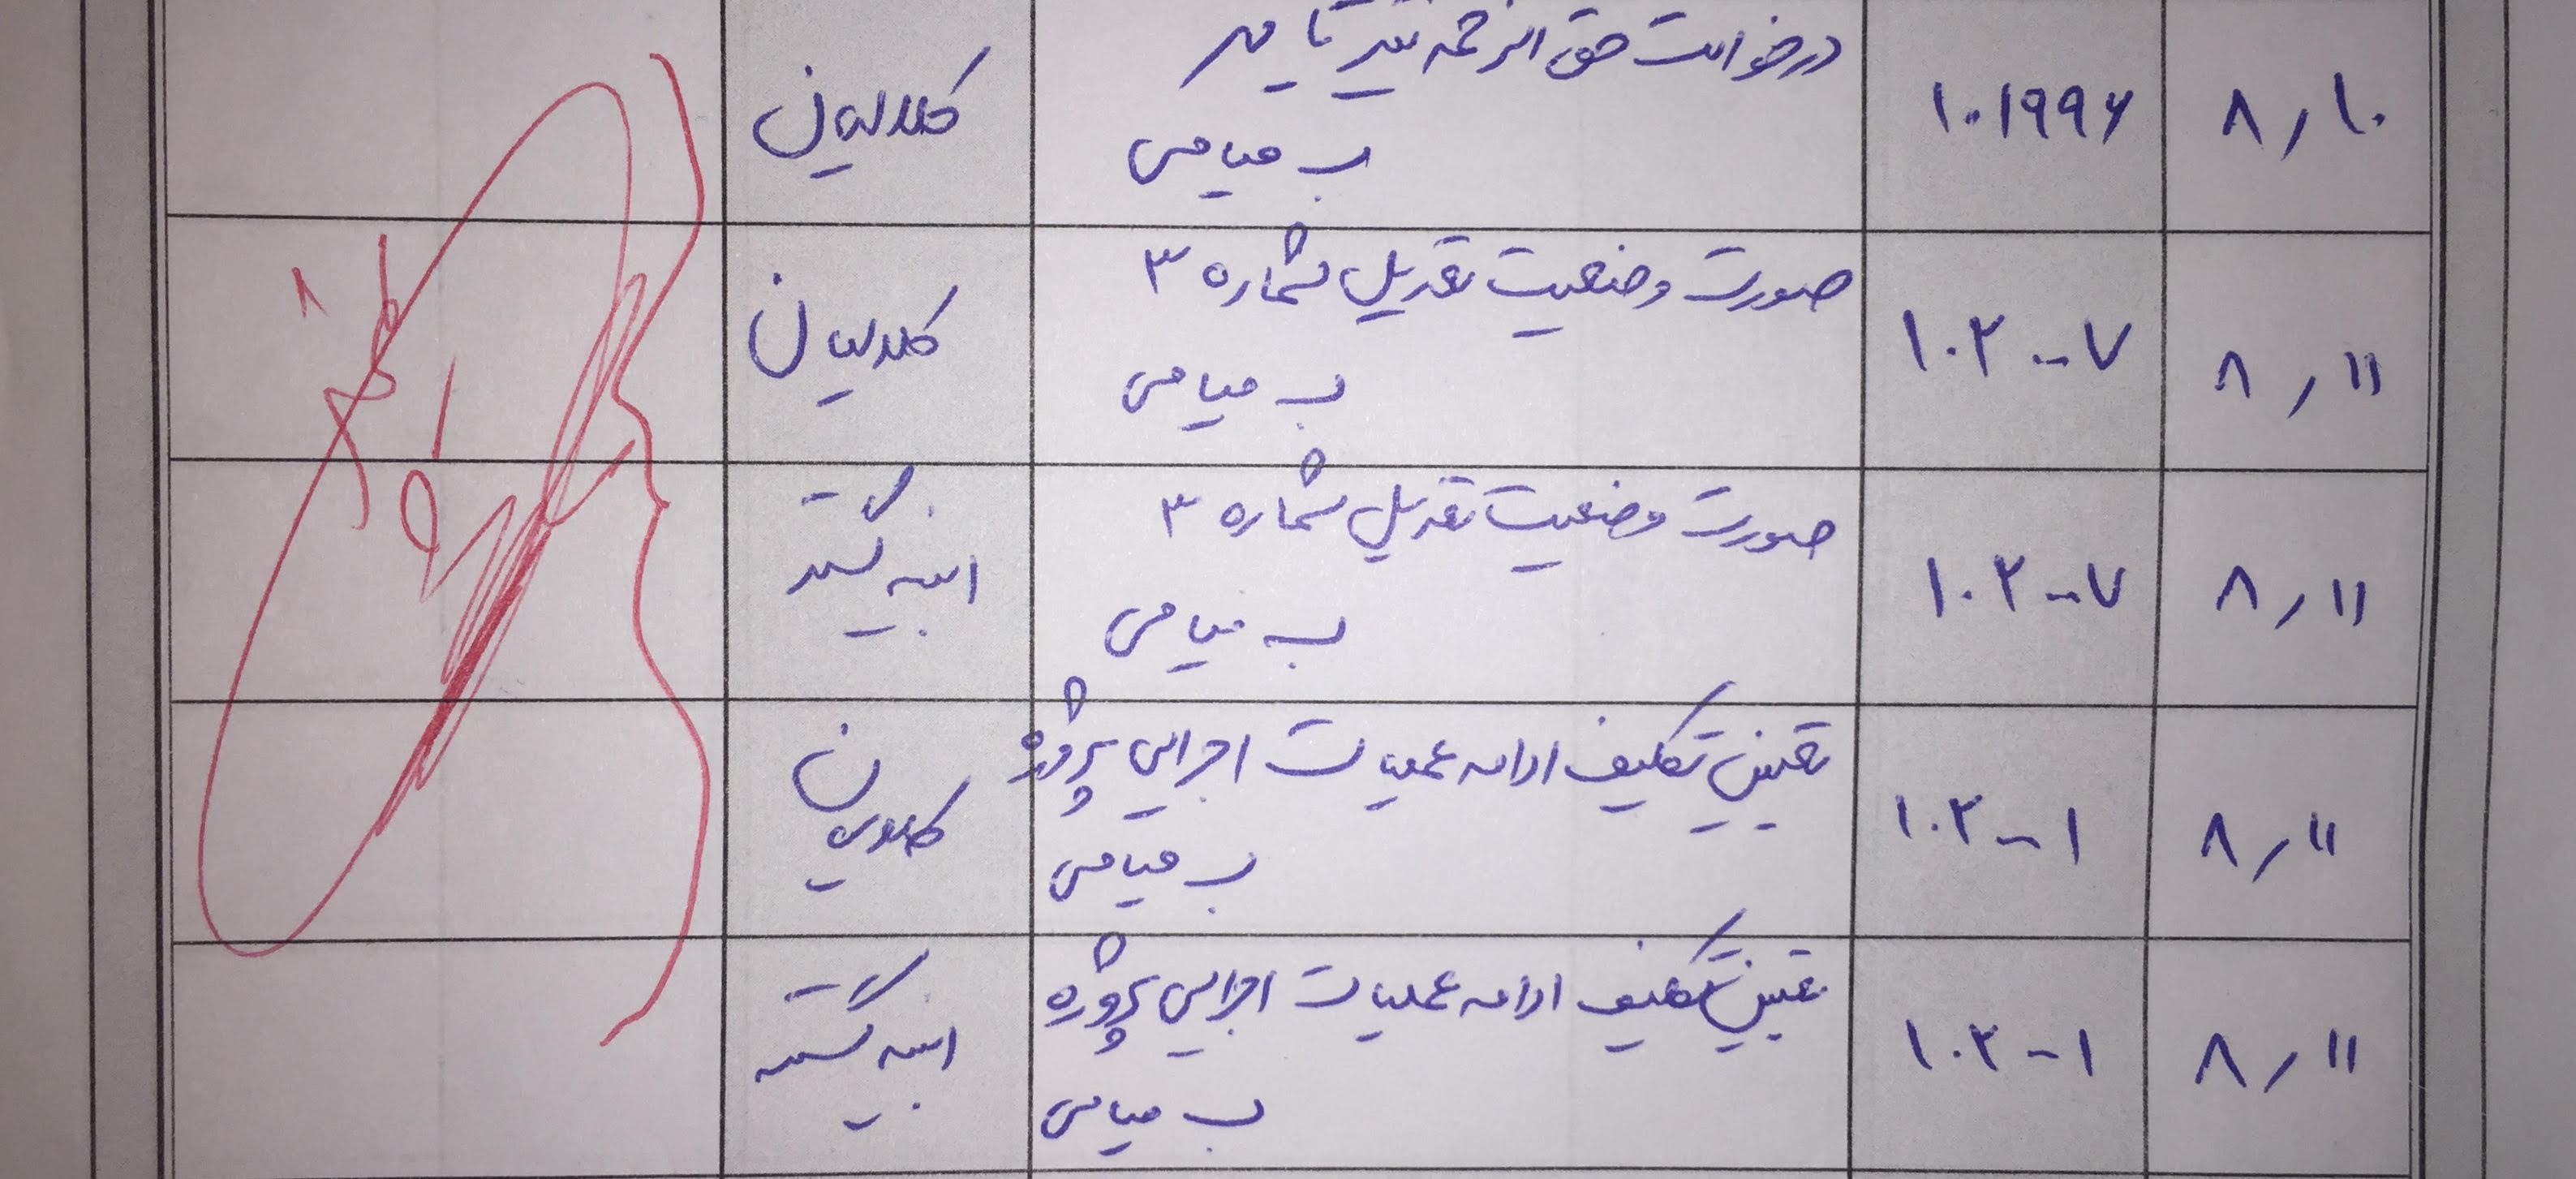 ۸/۱۰
۱۰۱۹۹۶
درخواست حق الزحمه
ب میامی
کلالیان
۸/۱۱
۱۰۲۰۰۷
صورت وضعیت تعدیل شماره ۳
ب میامی
کلالیان
۸/۱۱
۱۰۲۰۰۷
صورت وضعیت تعدیل شماره ۳
ب میامی
ابنیه گستر
۸/۱۱
۱۰۲۰۰۱
تعیین تکلیف ادامه عملیات اجرایی پروژه
ب میامی
کلالیان
۸/۱۱
۱۰۲۰۰۱
تعیین تکلیف ادامه عملیات اجرایی پروژه
ب میامی
ابنیه گستر